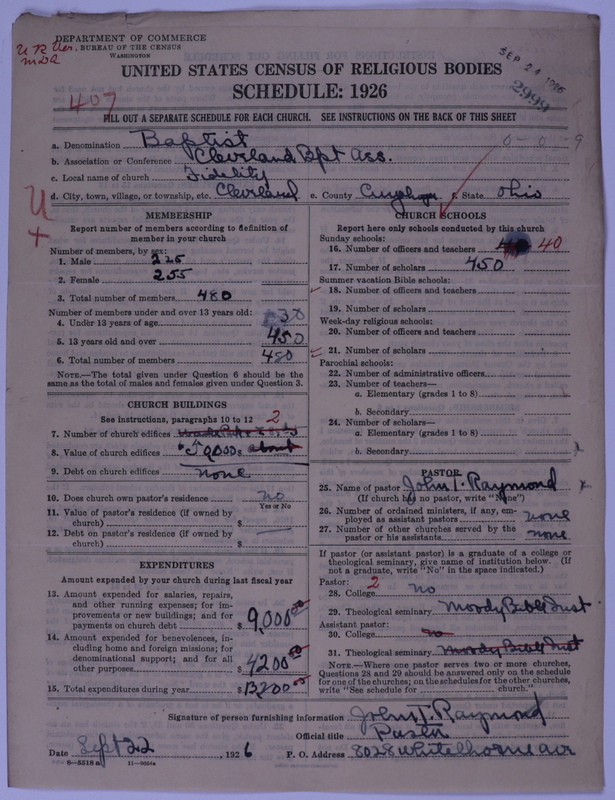 DEPARTMENT OF COMMERCE
BUREAU OF THE CENSUS
WASHINGTON
SEP 24 1926
2999
UNITED STATES CENSUS OF RELIGIOUS BODIES
SCHEDULE: 1926
407
FILL OUT A SEPARATE SCHEDULE FOR EACH CHURCH. SEE INSTRUCTIONS ON THE BACK OF THIS SHEET
a. Denomination Baptist 0-0-9
b. Association or Conference Cleveland Bpt Ass.
c. Local name of church Fidelity
d. City, town, village, or township, etc. Cleveland e. County Cuyahoga f. State Ohio
MEMBERSHIP
Report number of members according to definition of
member in your church
Number of members, by sex:
1. Male 225
2. Female 255
3. Total number of members 480
Number of members under and over 13 years old:
4. Under 13 years of age 30
5. 13 years old and over 450
6. Total number of members 480
NOTE.—The total given under Question 6 should be the
same as the total of males and females given under Question 3.
CHURCH BUILDINGS
See instructions, paragraphs 10 to 12 2
7. Number of church edifices
8. Value of church edifices about
9. Debt on church edifices none
10. Does church own pastor's residence no
Yes or No
11. Value of pastor's residence (if owned by
church) $
12. Debt on pastor's residence (if owned by
church) $
EXPENDITURES
Amount expended by your church during last fiscal year
13. Amount expended for salaries, repairs,
and other running expenses; for im-
provements or new buildings; and for
payments on church debt $ 9,000 00
14. Amount expended for benevolences, in-
cluding home and foreign missions; for
denominational support; and for all
other purposes $ 4200 00
15. Total expenditures during year $ 13,200 00
CHURCH SCHOOLS
Report here only schools conducted by this church
Sunday schools:
16. Number of officers and teachers 40
17. Number of scholars 450
Summer vacation Bible schools:
18. Number of officers and teachers
19. Number of scholars
Week-day religious schools:
20. Number of officers and teachers
21. Number of scholars
Parochial schools:
22. Number of administrative officers
23. Number of teachers—
a. Elementary (grades 1 to 8)
b. Secondary
24. Number of scholars—
a. Elementary (grades 1 to 8)
b. Secondary
PASTOR
25. Name of pastor John T. Raymond
(If church has no pastor, write "None")
26. Number of ordained ministers, if any, em-
ployed as assistant pastors none
27. Number of other churches served by the
pastor or his assistants none
If pastor (or assistant pastor) is a graduate of a college or
theological seminary, give name of institution below. (If
not a graduate, write "No" in the space indicated.)
Pastor: 2
28. College No
29. Theological seminary Moody Bible Inst
Assistant pastor:
30. College no
31. Theological seminary Moody Bible Inst
NOTE.—Where one pastor serves two or more churches,
Questions 28 and 29 should be answered only on the schedule
for one of the churches; on the schedules for the other churches,
write "See schedule for church."
Signature of person furnishing information John T. Raymond
Official title Pastor
Date Sept 22, 1926 P. O. Address 8028 Whitethorne av
8—5518 a 11—9024a